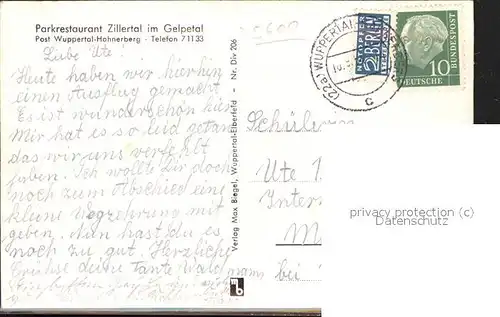 Parkrestaurant Zillertal im Gelpetal
Post Wuppertal-Hahnerberg - Telefon 71133
Liebe Ute!
Heute haben wir hierhin
einen Ausflug gemacht
Es ist wunderschön hier
Mir hat es so leid getan
das wir uns verfehlt
haben. Ich wollte Dir doch
noch zum Abschied eine
kleine Wegzehrung mit
geben. Nun hast du es
noch zu gut. Herzlich
Grüße deine Tante
Verlag Max Biegel, Wuppertal-Elberfeld - Nr. Div 206
mb
(22a) WUPPERTAL
c
NOTOPFER
2 BERLIN
STEUERMARKE
10
DEUTSCHE BUNDESPOST
Schüler
Ute
Inter
M
bei
privacy protection (c)
Daten